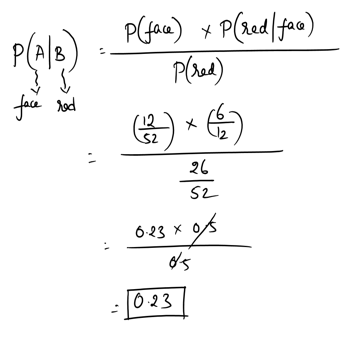 P(A|B) = P(face) × P(red|face) / P(red)
face red
= (12/52) × (6/12) / 26/52
= 0.23 × 0.5 / 0.5
= 0.23